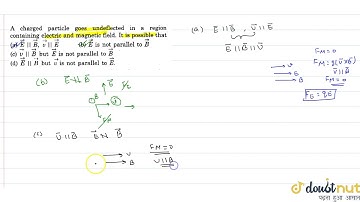 A charged particle goes undeflected in a region
containing electric and magnetic field. It is possible that
(a) E || B, v || E (b) E is not parallel to B
(c) v || B but E is not parallel to B
(d) E || B but v is not parallel to E
(a) E || B, v || E
E || B || v
F_M = 0
F_M = q(v × B)
v || B
F_M = 0
F_E = qE
(b) E ∦ B
(c) v || B E ∦ B
F_M = 0
v || B
v
B
doubtnut
पढ़ना हुआ आसान